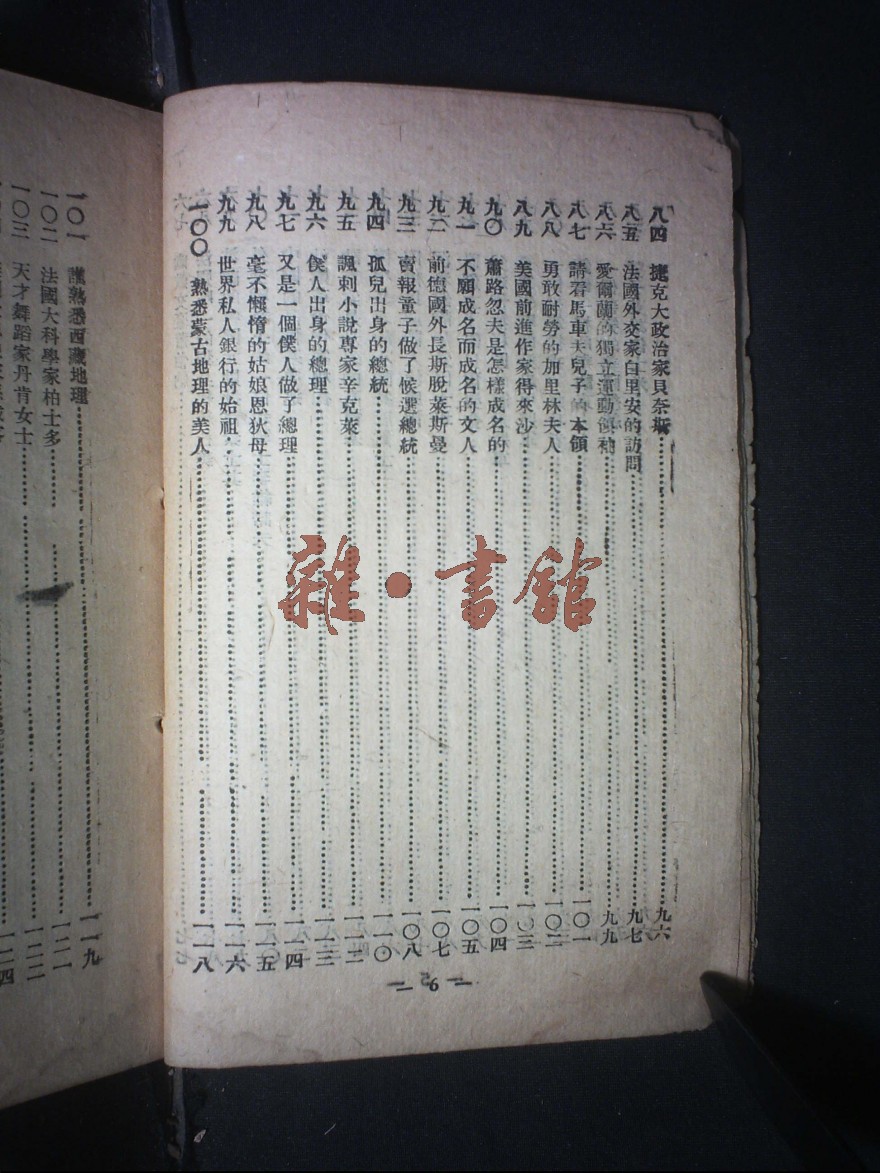 八四　捷克大政治家貝奈斯……九六
八五　法國外交家白里安的訪問……九七
八六　愛爾蘭的獨立運動領袖……九九
八七　請看馬車夫兒子的本領……一〇一
八八　勇敢耐勞的加里林夫人……一〇二
八九　美國前進作家得來沙……一〇三
九〇　蕭路忽夫是怎樣成名的……一〇四
九一　不願成名而成名的文人……一〇五
九二　前德國外長斯脫萊斯曼……一〇七
九三　賣報童子做了候選總統……一〇八
九四　孤兒出身的總統……一一〇
九五　諷刺小說專家辛克萊……一一二
九六　僕人出身的總理……一一三
九七　又是一個僕人做了總理……一一四
九八　毫不懶惰的姑娘恩狄母……一一五
九九　世界私人銀行的始祖……一一六
一〇〇　熟悉蒙古地理的美人……一一八
一〇一　謹熟悉西藏地理……一一九
一〇二　法國大科學家柏士多……一二一
一〇三　天才舞蹈家丹肯女士……一二二
一二四
雜·書館